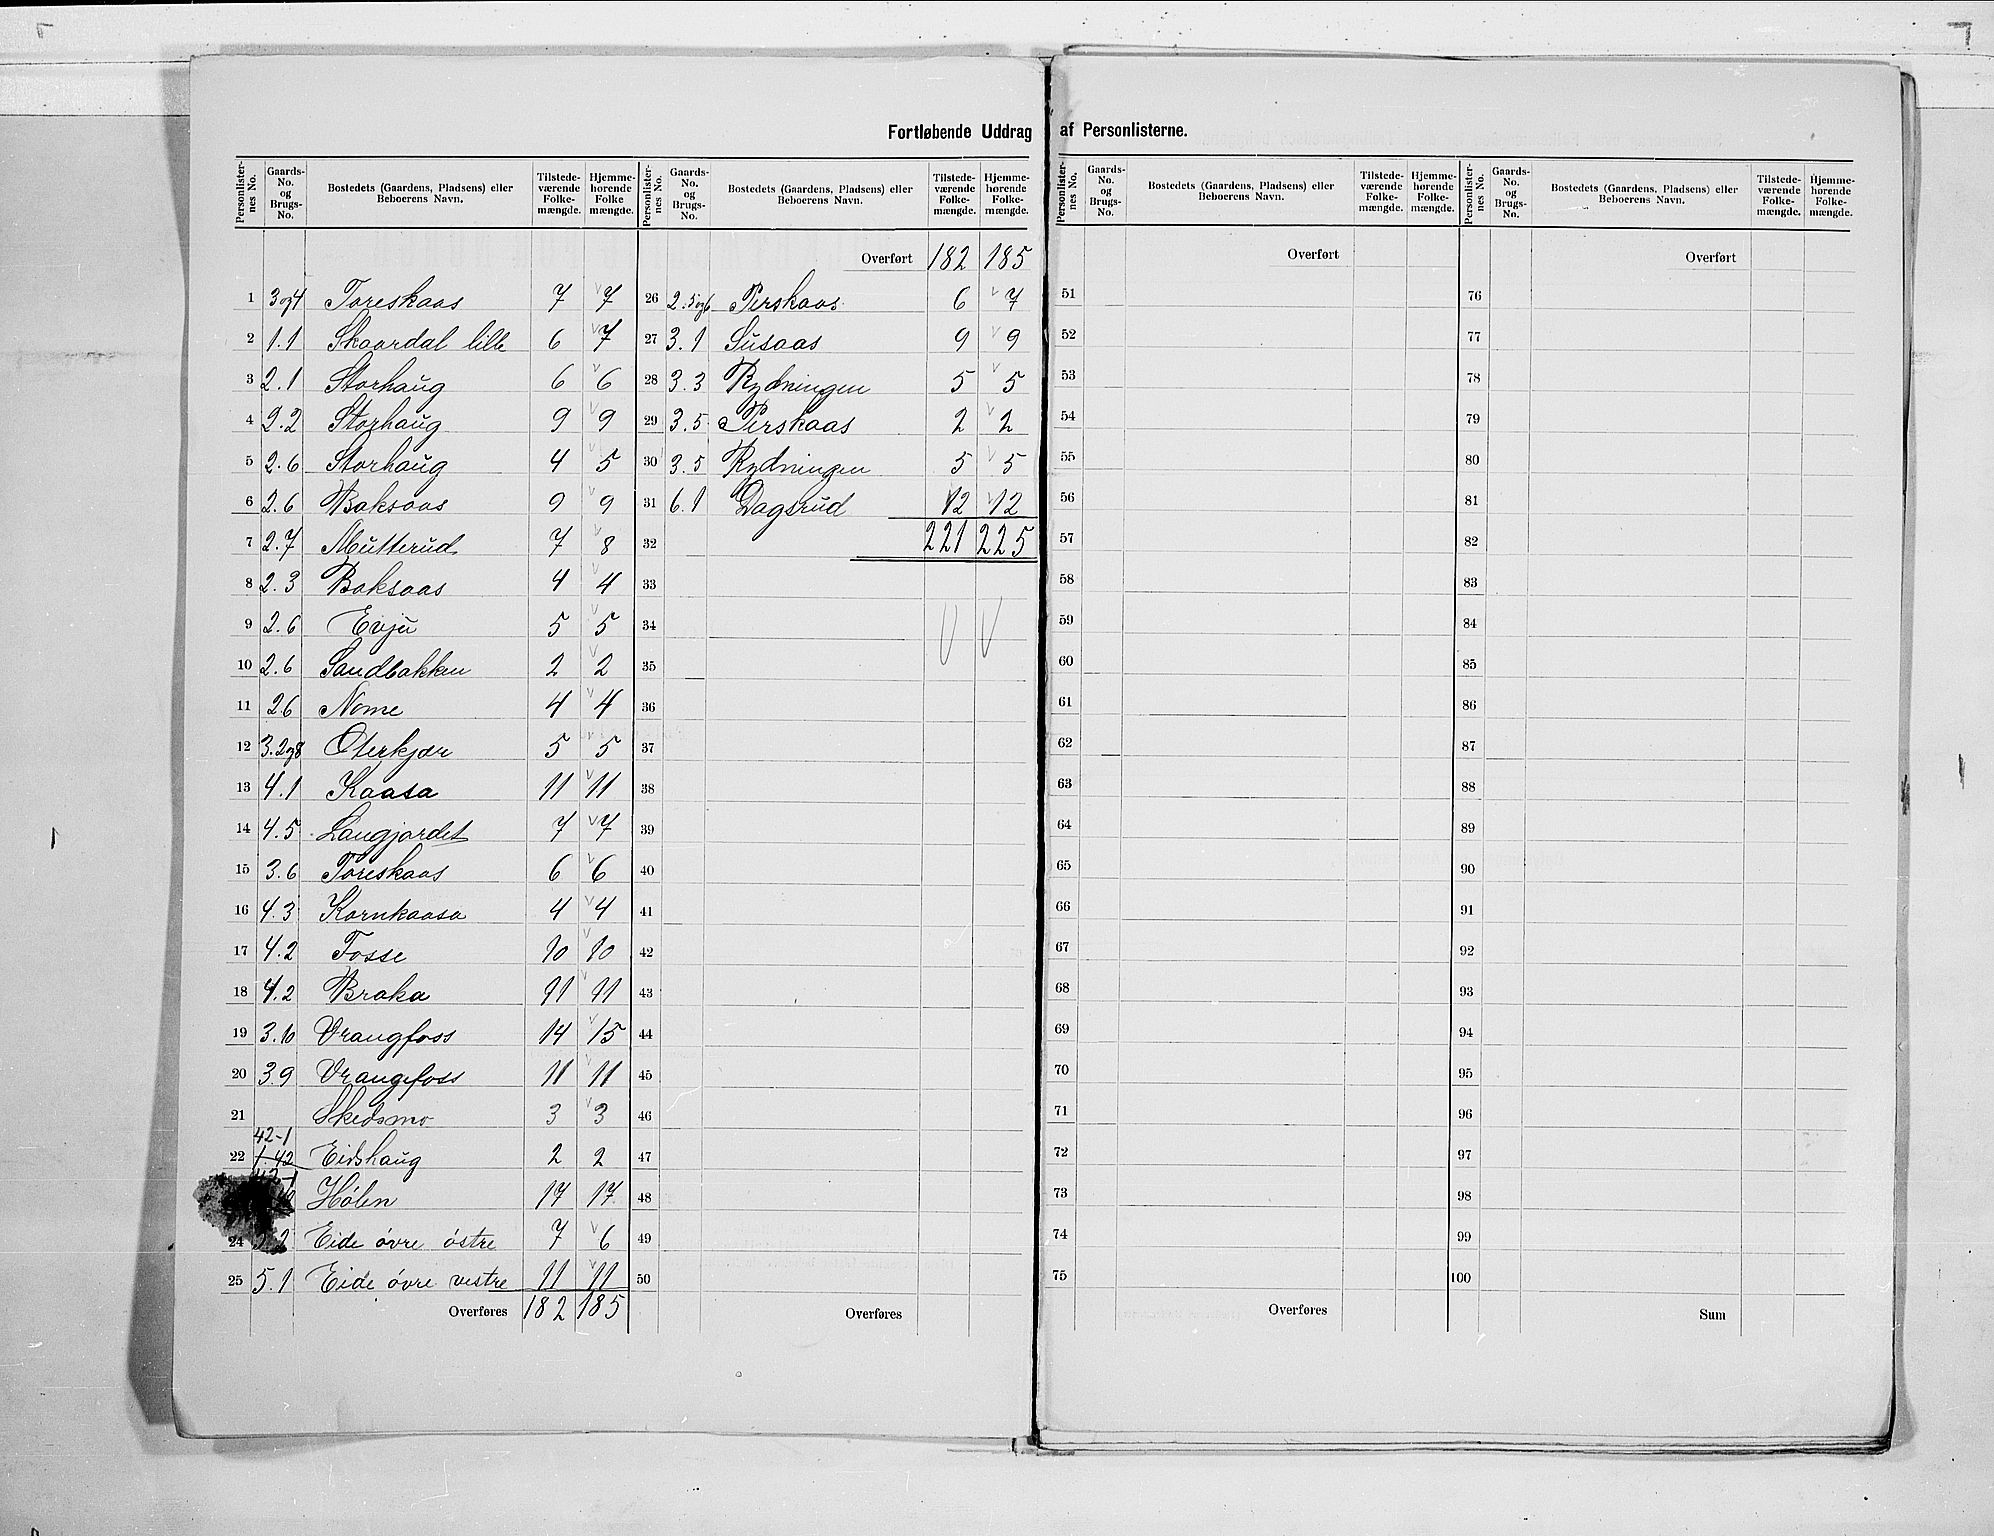 Fortløbende Uddrag af Personlisterne.
Personlisternes No. Gaards-No. og Brugs-No. Bostedets (Gaardens, Pladsens) eller Beboerens Navn. Tilstedeværende Folkemængde. Hjemmehørende Folkemængde.
1 3og4 Toreskaas 7 7
2 1.1 Skaardal lille 6 7
3 2.1 Storhaug 6 6
4 2.2 Storhaug 9 9
5 2.6 Storhaug 4 5
6 2.6 Baksaas 9 9
7 2.7 Mutterud 7 8
8 2.3 Baksaas 4 4
9 2.6 Evju 5 5
10 2.6 Sandbakken 2 2
11 2.6 Nome 4 4
12 3.2og8 Oterkjær 5 5
13 4.1 Kaasa 11 11
14 4.5 Langjordet 7 7
15 3.6 Toreskaas 6 6
16 4.3 Kornkaasa 4 4
17 4.2 Fosse 10 10
18 4.2 Braka 11 11
19 3.10 Vrangfoss 14 15
20 3.9 Vrangfoss 11 11
21 Skedsmo 3 3
42-1
22 1.42 Eidshaug 2 2
42-1
Hólen 17 17
24 Eide óvre óstre 7 6
25 5.1 Eide óvre vestre 11 11
Overføres 182 185
Personlisternes No. Gaards-No. og Brugs-No. Bostedets (Gaardens, Pladsens) eller Beboerens Navn. Tilstedeværende Folkemængde. Hjemmehørende Folkemængde.
Overført 182 185
26 2.5og6 Perskaas 6 7
27 3.1 Susaas 9 9
28 3.3 Rydningen 5 5
29 3.5 Perskaas 2 2
30 3.5 Rydningen 5 5
31 6.1 Dagsrud 12 12
32 221 225
33
34
35
36
37
38
39
40
41
42
43
44
45
46
47
48
49
50
Overføres
Personlisternes No. Gaards-No. og Brugs-No. Bostedets (Gaardens, Pladsens) eller Beboerens Navn. Tilstedeværende Folkemængde. Hjemmehørende Folkemængde.
Overført
51
52
53
54
55
56
57
58
59
60
61
62
63
64
65
66
67
68
69
70
71
72
73
74
75
Overføres
Personlisternes No. Gaards-No. og Brugs-No. Bostedets (Gaardens, Pladsens) eller Beboerens Navn. Tilstedeværende Folkemængde. Hjemmehørende Folkemængde.
Overført
76
77
78
79
80
81
82
83
84
85
86
87
88
89
90
91
92
93
94
95
96
97
98
99
100
Sum